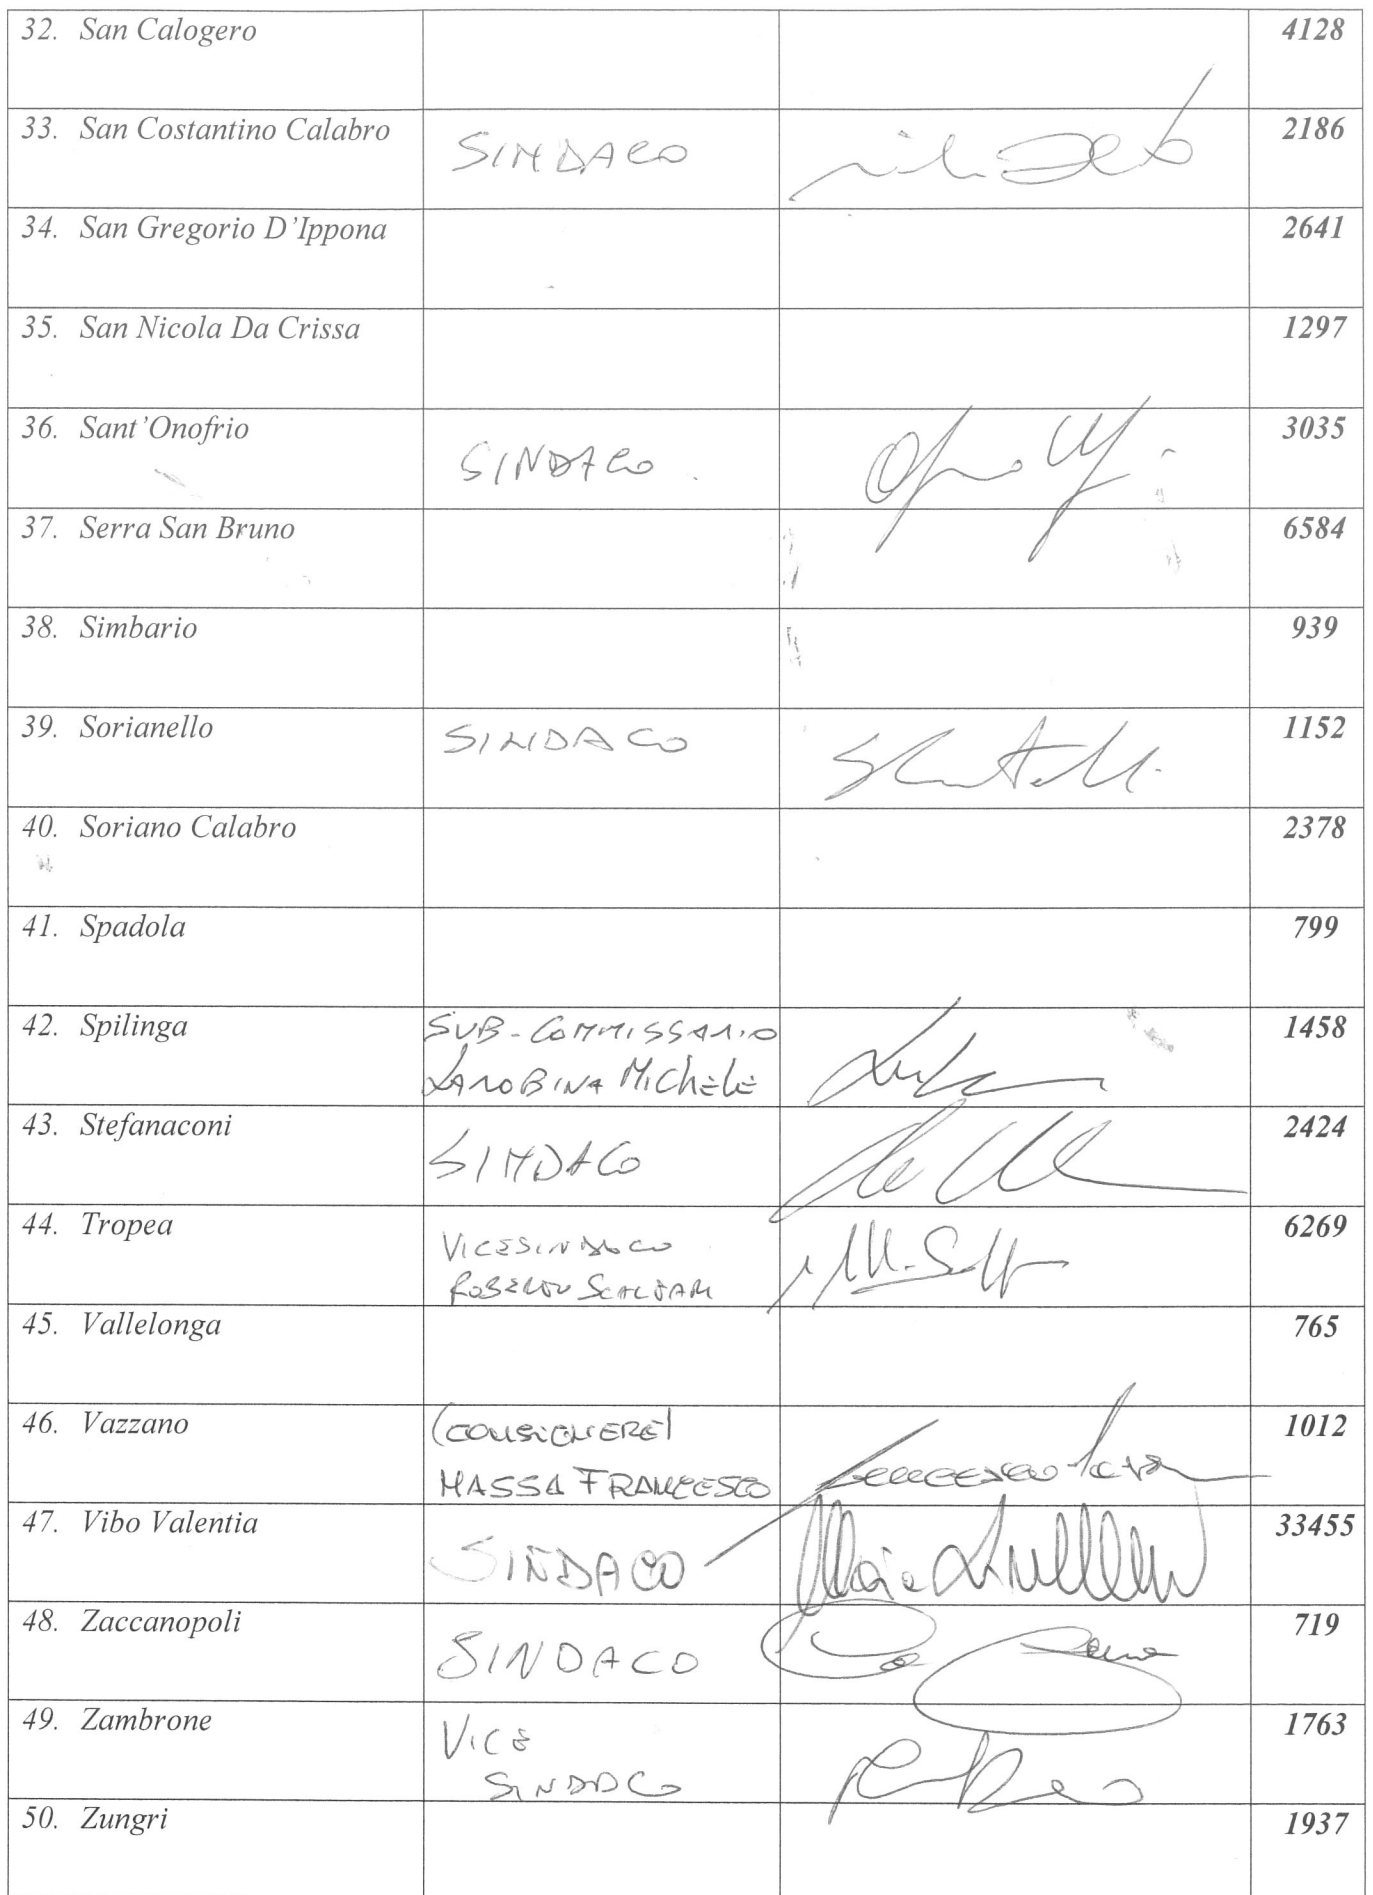 32. San Calogero 4128
33. San Costantino Calabro SINDACO 2186
34. San Gregorio D'Ippona 2641
35. San Nicola Da Crissa 1297
36. Sant'Onofrio SINDACO 3035
37. Serra San Bruno 6584
38. Simbario 939
39. Sorianello SINDACO 1152
40. Soriano Calabro 2378
41. Spadola 799
42. Spilinga SUB-COMMISSARIO 1458
LAROBINA MICHELE
43. Stefanaconi SINDACO 2424
44. Tropea VICESINDACO 6269
ROBERTO
45. Vallelonga 765
46. Vazzano (CONSIGLIERE) 1012
MASSA FRANCESCO
47. Vibo Valentia SINDACO 33455
48. Zaccanopoli SINDACO 719
49. Zambrone VICE 1763
SINDACO
50. Zungri 1937